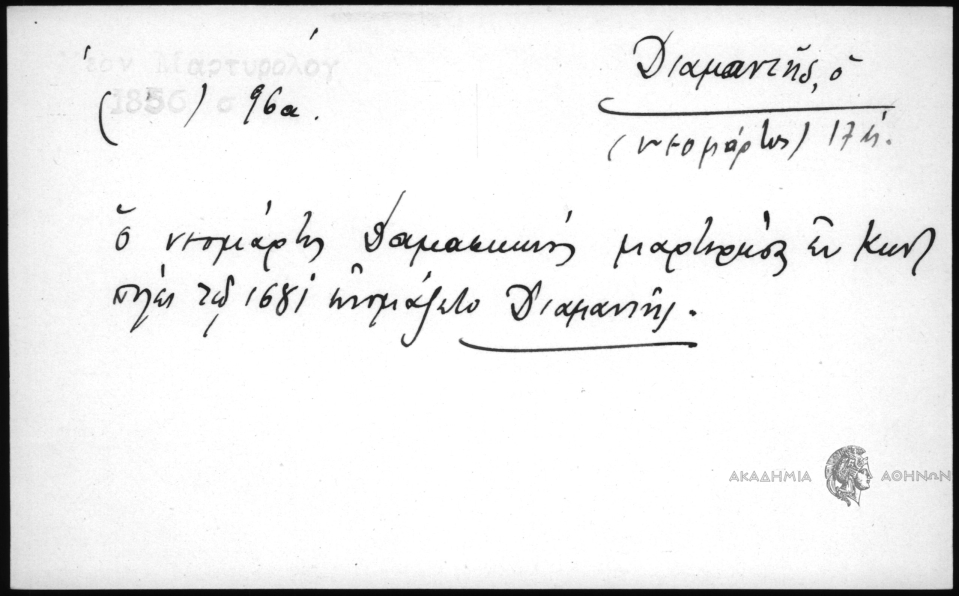 Νέον Μαρτυρολόγ
(1856) σ 96α.
Διαμαντῆς, ὁ
(νεομάρτυς) 17 αἰ.
ὁ νεομάρτυς Δαμασκηνός μαρτυρήσας ἐν Κων/
πόλει τῷ 1681 ὠνομάζετο Διαμαντῆς.
ΑΚΑΔΗΜΙΑ ΑΘΗΝΩΝ